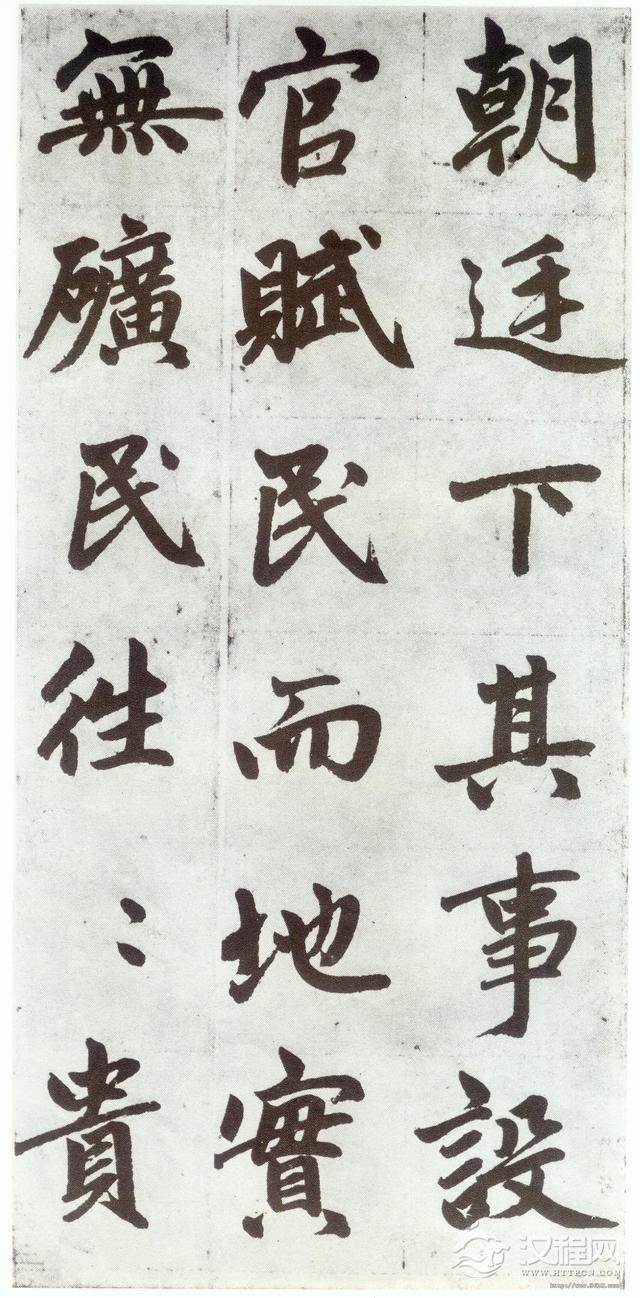 朝廷下其事設
官賦民而地實
無礦民往〻貴
汉程网
WWW.HTTPCN.COM